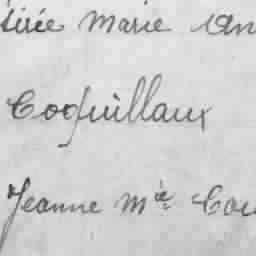 tirée Marie An
Coquillaux
Jeanne Mie Cou